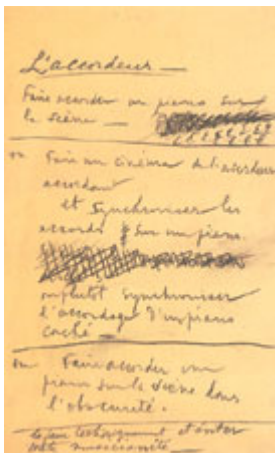 L'accordeur —
Faire accorder un piano sur
la scène —
ou Faire un cinéma de l'accordeur
accordant
et synchroniser les
accords sur un piano.
ou plutôt synchroniser
l'accordage d'un piano
caché —
ou Faire accorder un
piano sur la scène dans
l'obscurité.
le faire techniquement et éviter
toute musicianité —